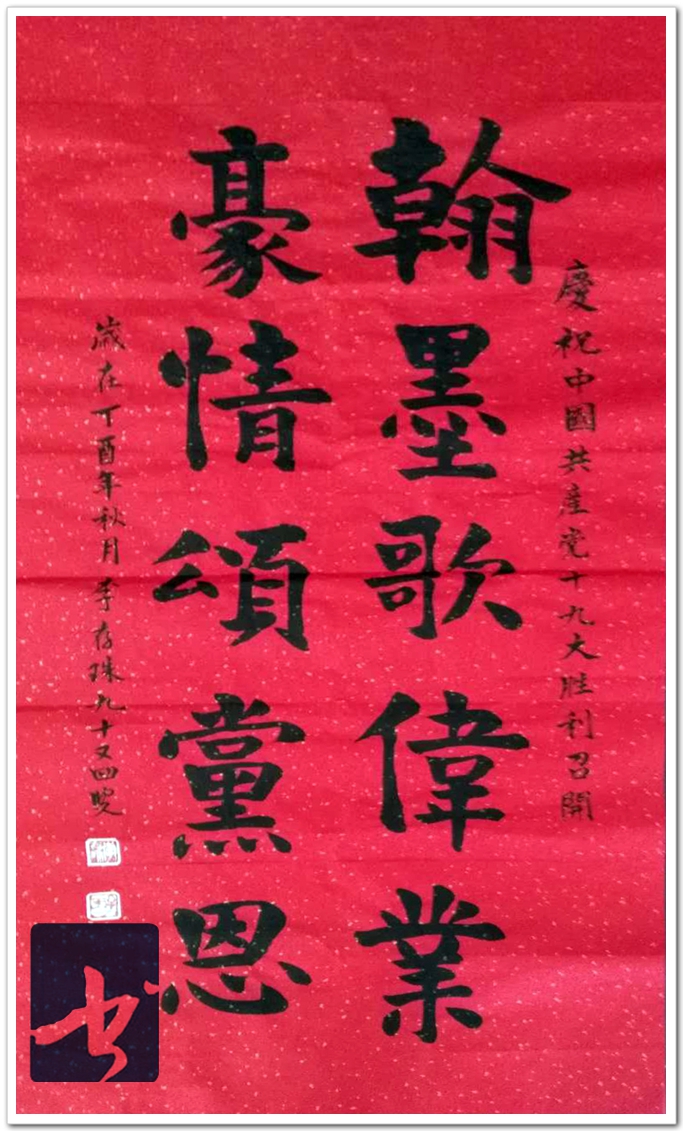 慶祝中國共產党十九大胜利召開
翰墨歌偉業
豪情頌黨恩
歲在丁酉年秋月李存珠九十又四叟
书